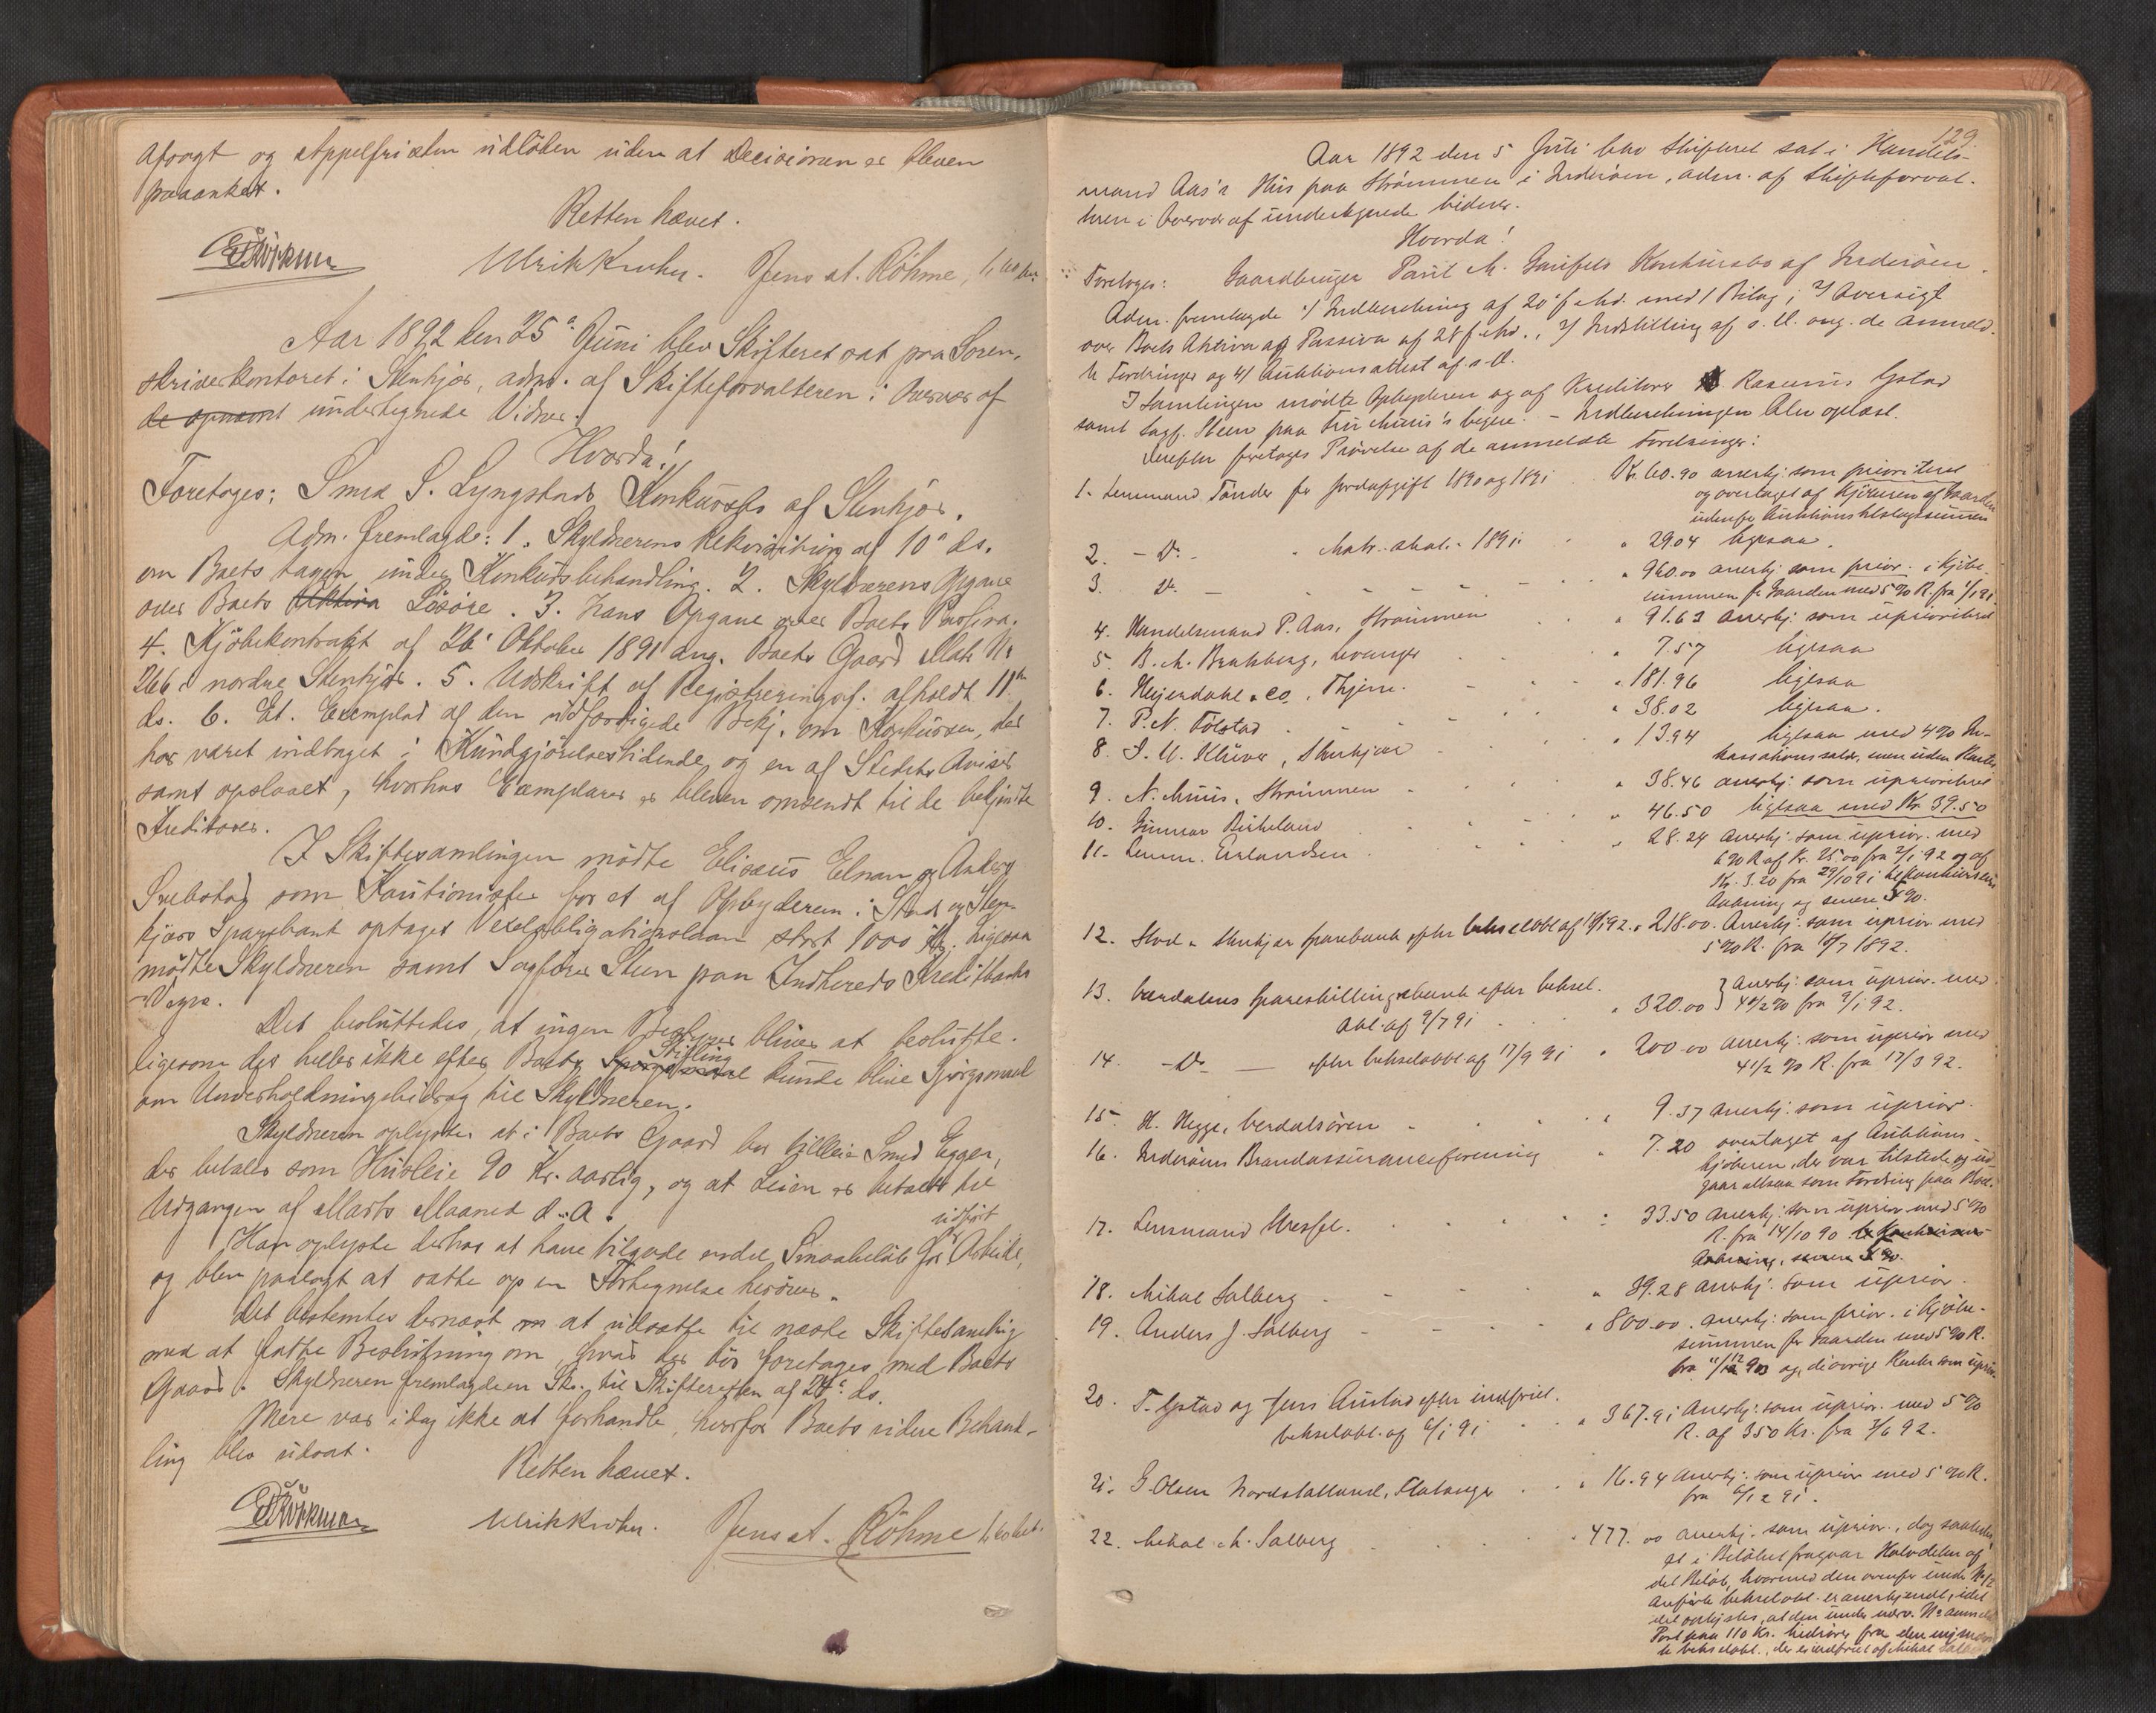 afsagt og Appelfristen udløben uden at Decisionen er bleven
paaanket.
Retten hævet.
Ulrik Krohn. Jens At. Röhme,
Aar 1892 den 25de Juni blev Skifteret sat paa Soren-
skriverkontoret i Stenkjær, adm. af Skifteforvalteren i Overvær af
de opnævnt undertegnede Vidner.
Hvorda!
Foretoges: Smed S. Lyngstads Konkursbo af Stenkjær.
Adm. fremlagde: 1. Skyldnerens Rekvisition af 10de ds.
om Boets tagen under Konkursbehandling. 2. Skyldnerens Opgave
over Boets Aktiva Løsøre. 3. hans Opgave over Boets Passiva.
4. Kjøbekontrakt af 26de Oktober 1891 ang. Boets Gaard Matr No
266 i nordre Stenkjær. 5. Udskrift af Registreringsf. afholdt 11te
ds. 6. Et Exemplar af den udfærdigede Bekj. om Konkursen, der
har været indtaget i Kundgjørelsestidende og en af Stedets Aviser
samt opslaaet, hvorhos Exemplarer er bleven omsendt til de bekjendte
Kreditorer.
I Skiftesamlingen mødte Elisæus Elnan og Anders
som Kautionister for et af Opbyderen i Stod og Sten-
kjærs Sparebank optaget Vexelobligationslaan stort 1000 Kr. Ligesaa
mødte Skyldneren samt Sagfører Steen paa Indherreds Kreditbanks
Vegne.
Det besluttedes, at ingen Bestyrer bliver at beskikke.
ligesom der heller ikke efter Boets Spørgsmaal Stilling kunde blive Spørgsmaal
om Underholdningsbidrag til Skyldneren.
Skyldneren oplyste at i Boets Gaard bor tilleie Smed Egger,
der betaler som Husleie 90 Kr. aarlig, og at Leien er betalt til
Udgangen af Marts Maaned d. A.
Han oplyste derhos at have tilgode endel Smaabeløb for udført Arbeide,
og blev paalagt at sætte op en Fortegnelse herover.
Det bestemtes dernæst at udsætte til næste Skiftesamling
med at fatte Beslutning om, hvad der bør foretages med Boets
Gaard. Skyldneren fremlagde en Skr. til Skifteretten af 24de ds.
Mere var idag ikke at forhandle, hvorfor Boets videre Behand-
ling blev udsat.
Retten hævet.
Ulrik Krohn. Jens At. Röhme
129
Aar 1892 den 5 Juli blev Skifteret sat i Handels-
mand Aas's Hus paa Strømmen i Inderøen, adm. af Skifteforval-
teren i Overvær af undertegnede Vidner.
Hvorda!
Foretoges: Gaardbruger Paul M. Konkursbo af Inderøen.
Adm. fremlagde 1/ Indberetning af 20 f. Md. med 1 Bilag; 2/ Oversigt
over Boets Aktiva og Passiva af 28 f. Md., 3/ Indstilling af s. D. ang. de anmeld-
te Fordringer og 4/ Auktionsattest af s. D.
I Samlingen mødte Opbyderen og af Kreditorer Rasmus Ystad
samt Sagf. Steen paa Fru Muus's vegne. - Indberetningen blev oplæst.
Derefter foretoges Prøvelse af de anmeldte Fordringer:
1. Lensmand Tønder for Jordafgift 1890 og 1891 Kr. 60.90 anerkj som prioriteret
og overtaget af Kjøberen af Gaarden
udenfor Auktionstilslagssummen
2. - Do - " Matr. skat. - 1891. " 29.04 ligesaa.
3. Do - " 960.00 anerkj som prior. i Kjøbe-
summen for Gaarden med 5 % R. fra 1/1 91
4. Handelsmand P. Aas, Strømmen " 91.63 anerkj: som uprioriteret
5. B. M. Bratsberg, Levanger " 7.57 ligesaa
6. Huitfeldt & Co, Thjem. " 181.96 ligesaa
7. P. N. Tølstad " 38.02 ligesaa.
8. I. U. Klüwer, Stenkjær " 13.94 ligesaa med 4 % In-
kassationssalær, men uden Renter
9. N. Muus, Strømmen " 38.46 anerkj: som uprioriteret
10. Gunnar Birkeland " 46.50 ligesaa med Kr. 39.50
11. Lensm. Erlandsen " 28.24 anerkj: som uprior. med
6 % R af Kr. 25.00 fra 2/1 92 og af
Kr. 3.20 fra 29/10 91 til Konkursens
Aabning og senere 5 %.
12. Stod & Stenkjær Sparebank efter Vekselobl af 1892. " 218.00. Anerkj: som uprior med
5 % R. fra 1/7 1892.
13. Værdalens Spareskillingsbank efter Veksel-
obl. af 9/7 91 " 320.00 } Anerkj: som uprior. med
4 1/2 % fra 9/1 92.
14. - Do - efter Vekselobl af 17/9 91 " 200.00 anerkj: som uprior med
4 1/2 % R. fra 17/3 92.
15. H. Hegge, Verdalsøren " 9.37 anerkj: som uprior.
16. Inderøens Brandassuranceforening " 7.20 overtaget af Auktions-
kjøberen, der var tilstede og ud-
gaar altsaa som Fordring paa Boet.
17. Lensmand Wessel. " 33.50 anerkj: som uprior med 5 %
R. fra 14/10 90 til Konkursens
Aabning, senere 5 %.
18. Mikal Salberg " 39.28 anerkj: som uprior.
19. Anders J. Salberg " 800.00. anerkj: som prior. i Kjøbe-
summen for Gaarden med 5 % R.
fra 11/12 90 og de øvrige Renter som uprior.
20. T. Ystad og Jens Austad efter indfriet.
vekselobl. af 6/1 91 " 367.91 Anerkj: som uprior. med 5 %
R. af 350 Kr. fra 7/6 92.
21. G. Olsen Nordstatland, Flatanger " 16.94 anerkj: som uprior med 5 % R.
fra 6/12 91.
22. Mikal M. Salberg " 477.00 anerkj. som uprior., dog saaledes
at i Beløbet fragaar Halvdelen af
det Beløb, hvormed den ovenfor under No 12
anførte vekselobl. er anerkjendt, idet
det oplystes, at den under nærv. No anmeldte
Post paa 110 Kr. hidrører fra den
vekselobl., der er indfriet af Mikal Salberg